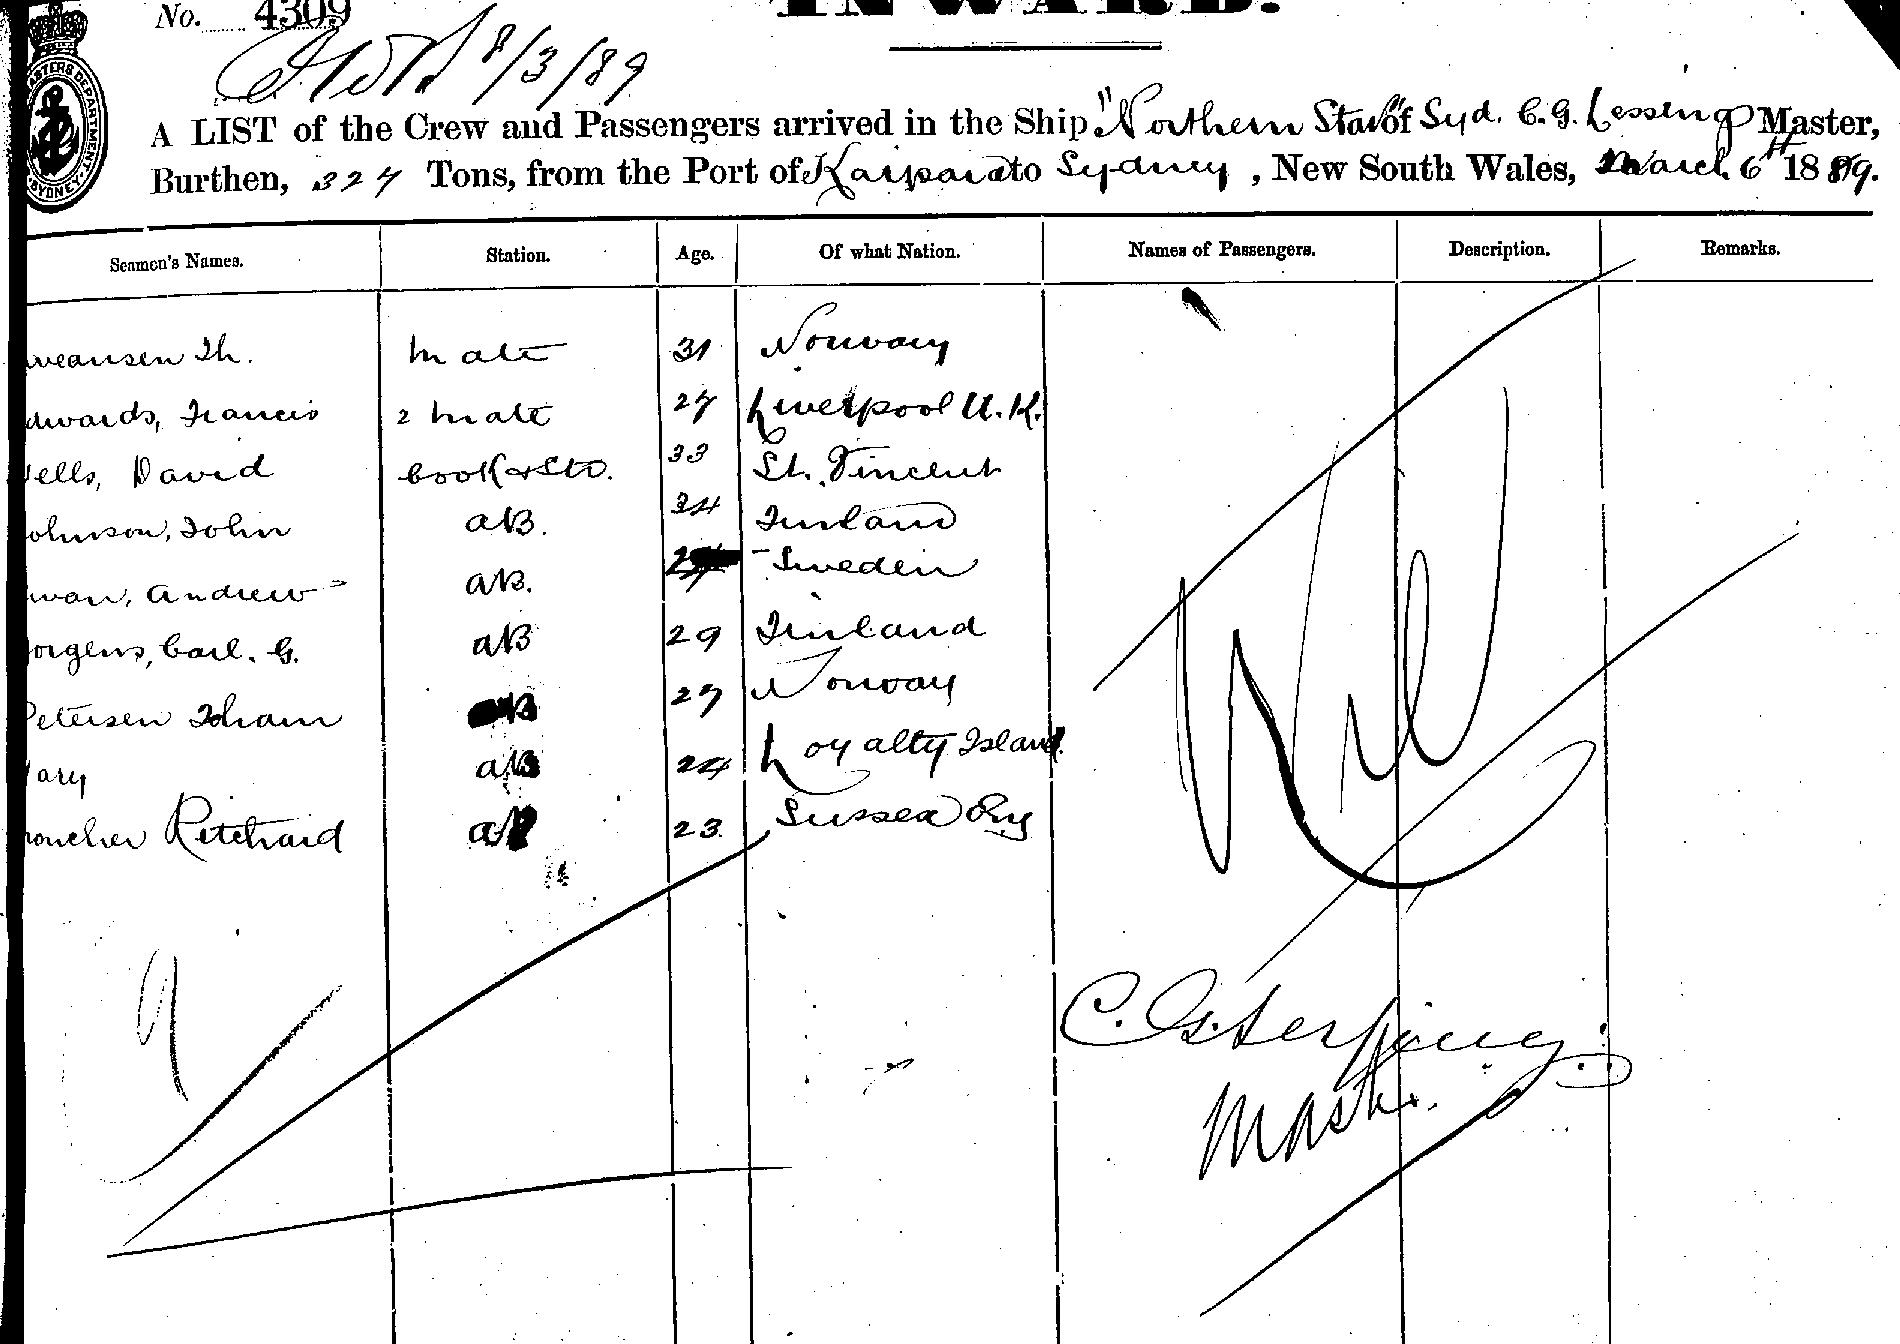 No. 4309
INWARD.
8/3/89
MASTERS DEPARTMENT SYDNEY
A LIST of the Crew and Passengers arrived in the Ship "Northern Star" of Syd. C. G. Lessing Master,
Burthen, 327 Tons, from the Port of Kaipara to Sydney, New South Wales, March 6th 1889.
Seamen's Names. Station. Age. Of what Nation. Names of Passengers. Description. Remarks.
Th. Mate 31 Norway
dwards, Francis 2 Mate 27 Liverpool U.K.
ells, David Cook & Std. 33 St. Vincent
ohnson, John AB. 34 Finland
wan, Andrew AB. Sweden
orgens, Carl. G. AB 29 Finland
Petersen AB 27 Norway
ary AB 24 Loyalty Island
Ritchard AB 23. Sussex Eng
Nil
9
C.
Master.